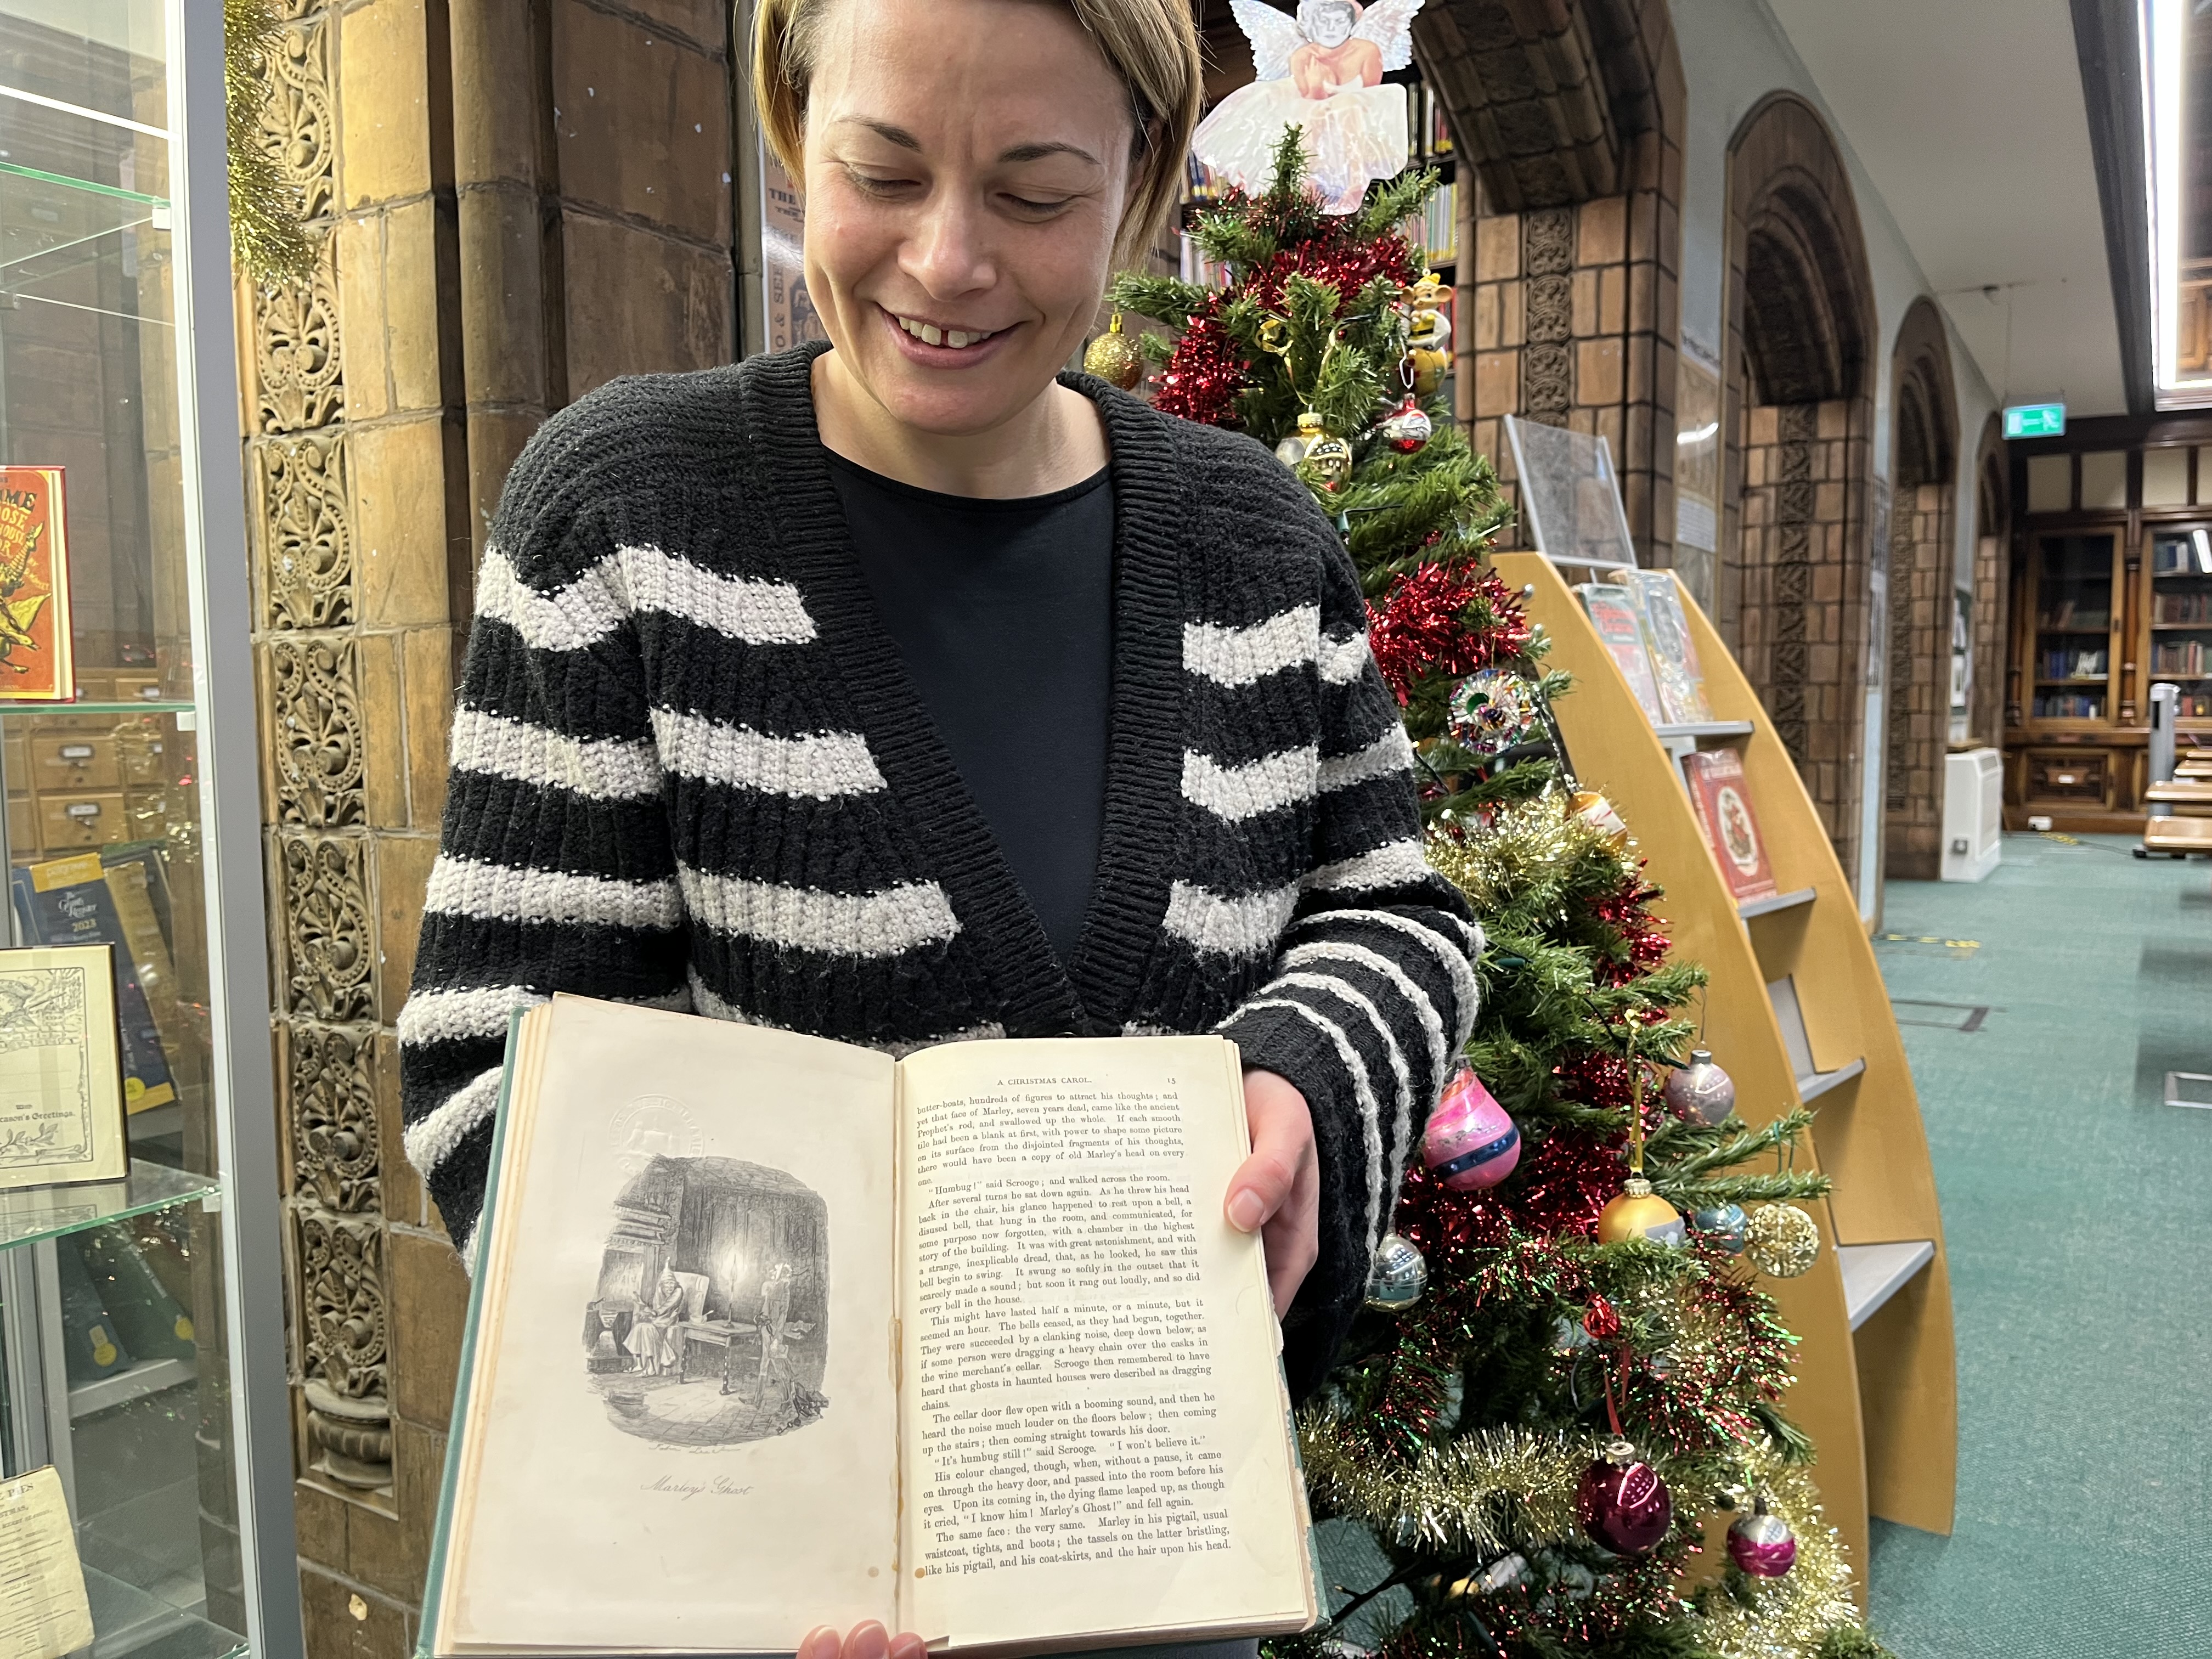 A CHRISTMAS CAROL.
15
butter-boats, hundreds of figures to attract his thoughts; and
yet that face of Marley, seven years dead, came like the ancient
Prophet's rod, and swallowed up the whole. If each smooth
tile had been a blank at first, with power to shape some picture
on its surface from the disjointed fragments of his thoughts,
there would have been a copy of old Marley's head on every
one.
"Humbug!" said Scrooge; and walked across the room.
After several turns he sat down again. As he threw his head
back in the chair, his glance happened to rest upon a bell, a
disused bell, that hung in the room, and communicated, for
some purpose now forgotten, with a chamber in the highest
story of the building. It was with great astonishment, and with
a strange, inexplicable dread, that, as he looked, he saw this
bell begin to swing. It swung so softly in the outset that it
scarcely made a sound; but soon it rang out loudly, and so did
every bell in the house.
This might have lasted half a minute, or a minute, but it
seemed an hour. The bells ceased, as they had begun, together.
They were succeeded by a clanking noise, deep down below, as
if some person were dragging a heavy chain over the casks in
the wine merchant's cellar. Scrooge then remembered to have
heard that ghosts in haunted houses were described as dragging
chains.
The cellar door flew open with a booming sound, and then he
heard the noise much louder on the floors below; then coming
up the stairs; then coming straight towards his door.
"It's humbug still!" said Scrooge. "I won't believe it."
His colour changed, though, when, without a pause, it came
on through the heavy door, and passed into the room before his
eyes. Upon its coming in, the dying flame leaped up, as though
it cried, "I know him! Marley's Ghost!" and fell again.
The same face: the very same. Marley in his pigtail, usual
waistcoat, tights, and boots; the tassels on the latter bristling,
like his pigtail, and his coat-skirts, and the hair upon his head.
Marley's Ghost
2023
With
eason's Greetings.
THE
O & SEE